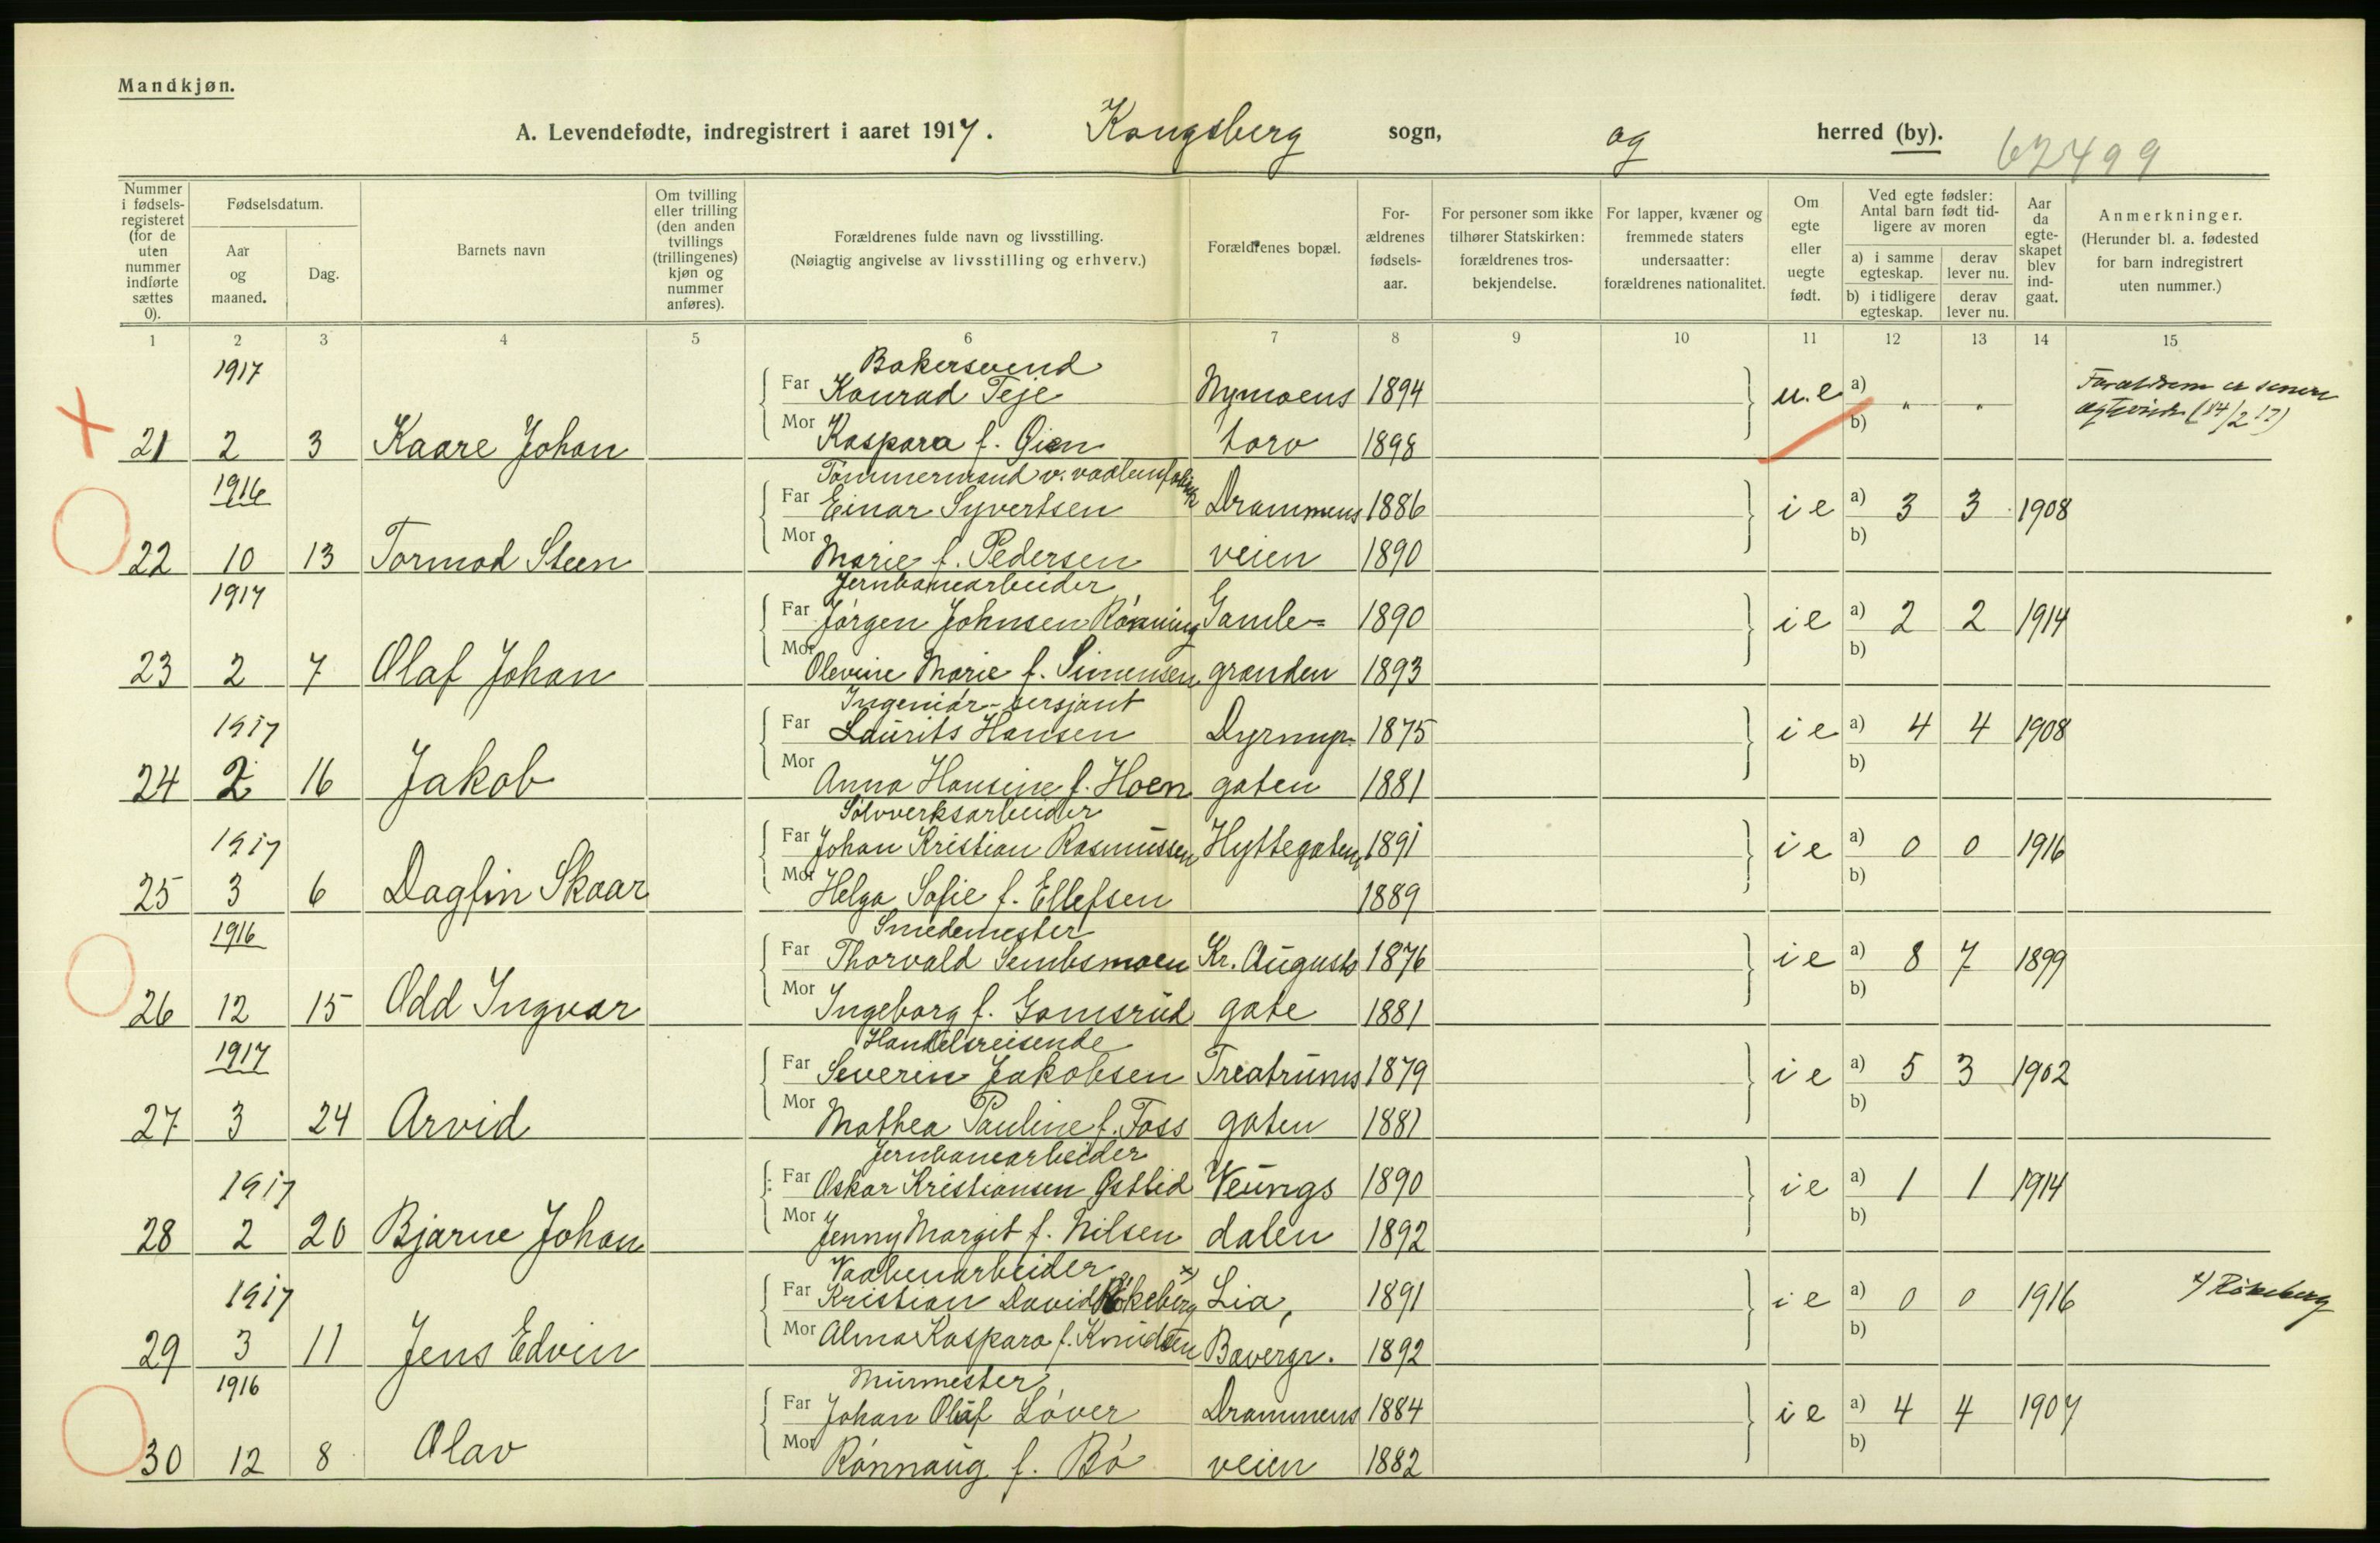 Mandkjøn.
A. Levendefødte, indregistrert i aaret 1917. Kongsberg sogn, og herred (by). 62499
Nummer i fødselsregisteret (for de uten nummer indførte sættes 0).
Fødselsdatum.
Aar og maaned.
Dag.
Barnets navn
Om tvilling eller trilling (den anden tvillings (trillingenes) kjøn og nummer anføres).
Forældrenes fulde navn og livsstilling.
(Nøiagtig angivelse av livsstilling og erhverv.)
Forældrenes bopæl.
Forældrenes fødselsaar.
For personer som ikke tilhører Statskirken: forældrenes trosbekjendelse.
For lapper, kvæner og fremmede staters undersaatter: forældrenes nationalitet.
Om egte eller uegte født.
Ved egte fødsler: Antal barn født tidligere av moren
a) i samme egteskap. derav lever nu.
b) i tidligere egteskap. derav lever nu.
Aar da egteskapet blev indgaat.
Anmerkninger.
(Herunder bl. a. fødested for barn indregistrert uten nummer.)
1 2 3 4 5 6 7 8 9 10 11 12 13 14 15
1917 Bakersvend
Far Konrad Teje Nymoens 1894 u.e a) " " Forældrene er senere
21 2 3 Kaare Johan Mor Kaspara f. Gien torv 1898 b) (14/2 17)
1916 Tømmermand v. vaabenfabrik
Far Einar Syvertsen Drammens 1886 i e a) 3 3 1908
22 10 13 Tormod Steen Mor Marie f. Pedersen veien 1890 b)
1917 Jernbanearbeider
Far Jørgen Johnsen Rønning Gamle= 1890 i e a) 2 2 1914
23 2 7 Olaf Johan Mor Olevine Marie f. Simensen granden 1893 b)
1917 Ingeniør-sersjant
Far Laurits Hansen Dyrmyr 1875 i e a) 4 4 1908
24 2 16 Jakob Mor Anna Hansine f. Hoen gaten 1881 b)
1917 Sølvverksarbeider
Far Johan Kristian Rasmussen Hyttegaten 1891 i e a) 0 0 1916
25 3 6 Dagfin Skaar Mor Helga Sofie f. Ellefsen 1889 b)
1916 Smedemester
Far Thorvald Sembsmoen Kr. Augusts 1876 i e a) 8 7 1899
26 12 15 Odd Ingvar Mor Ingeborg f. Gamsrud gate 1881 b)
1917 Handelsreisende
Far Severin Jakobsen Treatrums 1879 i e a) 5 3 1902
27 3 24 Arvid Mor Mathea Pauline f. Foss gaten 1881 b)
1917 Jernbanearbeider
Far Oskar Kristiansen Østlid Veungs 1890 i e a) 1 1 1914
28 2 20 Bjarne Johan Mor Jenny Margit f. Nilsen dalen 1892 b)
1917 Vaabenarbeider
Far Kristian David Røkeberg x) Lia, 1891 i e a) 0 0 1916 x) Røkeberg
29 3 11 Jens Edvin Mor Alma Kaspara f. Knudsen Bævergr. 1892 b)
1916 Murmester
Far Johan Olaf Løver Drammens 1884 i e a) 4 4 1907
30 12 8 Olav Mor Rønnaug f. Bø veien 1882 b)